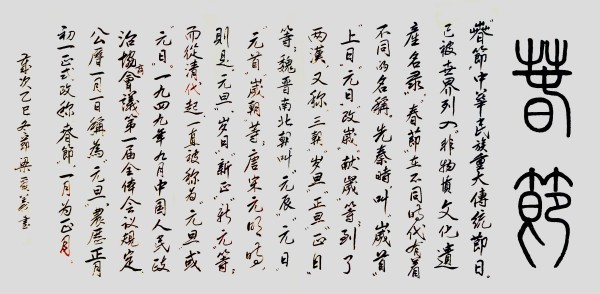 春節
"春節"中華民族重大傳統節日。
已被世界列入"非物質文化遺
產名录"。春節在不同時代有着
不同的名稱。先秦時叫"歲首"
"上日""元日""改歲""献歲"等；到了
两漢又称"三朝""岁旦""正旦""正日"
等；魏晉南北朝叫"元辰""元日"
"元首""歲朝"等；唐宋元明時，
則是"元旦""岁日""新正""新元"等；
而從清代起，一直被称为"元旦或
元日"。一九四九年九月中国人民政
治協會議第一届全体会议規定
公曆一月一日稱為"元旦"，農历正月
初一正式改称春節，一月为正月。
歲次乙巳冬節梁 書